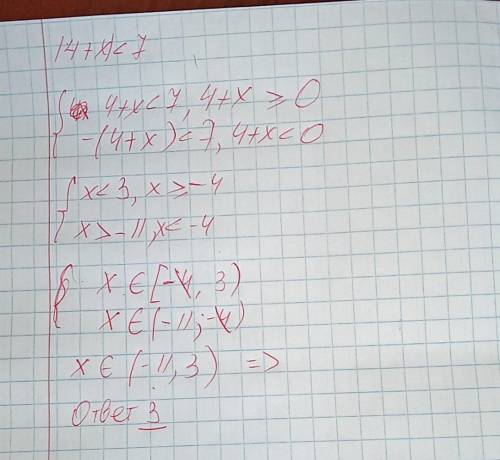 |4+x|<7
4+x<7, 4+x ≥ 0
-(4+x)<7, 4+x<0
x<3, x ≥ -4
x > -11, x< -4
x ∈ [-4, 3)
x ∈ (-11; -4)
x ∈ (-11, 3) =>
Ответ 3